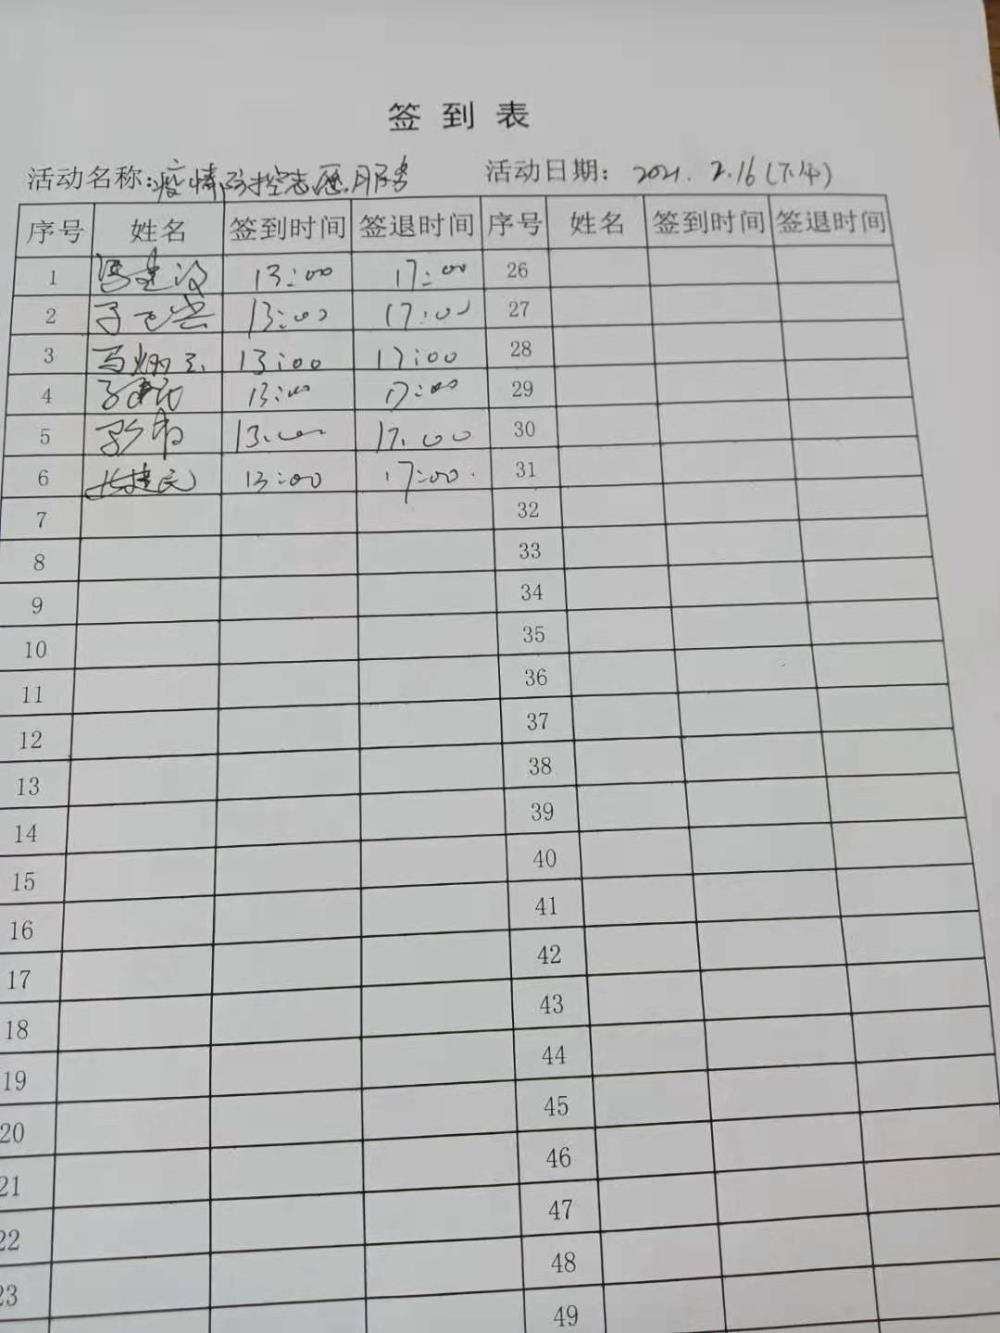 签到表
活动名称:疫情防控志愿服务 活动日期: 2021.2.16(下午)
序号 姓名 签到时间 签退时间 序号 姓名 签到时间 签退时间
1 13:00 17:00 26
2 13:00 17:00 27
3 13:00 17:00 28
4 13:00 17:00 29
5 13:00 17:00 30
6 13:00 17:00. 31
7 32
8 33
9 34
10 35
11 36
12 37
13 38
14 39
15 40
16 41
17 42
18 43
19 44
20 45
21 46
22 47
23 48
49